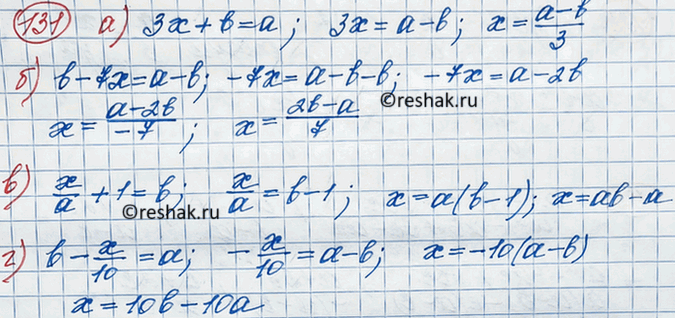 131 а) 3x + b = a; 3x = a - b; x = (a-b)/3
б) b - 7x = a - b; -7x = a - b - b; -7x = a - 2b
©reshak.ru
x = (a-2b)/-7; x = (2b-a)/7
в) x/a + 1 = b; x/a = b - 1; x = a(b-1); x = ab - a
©reshak.ru
г) b - x/10 = a; -x/10 = a - b; x = -10(a-b)
x = 10b - 10a